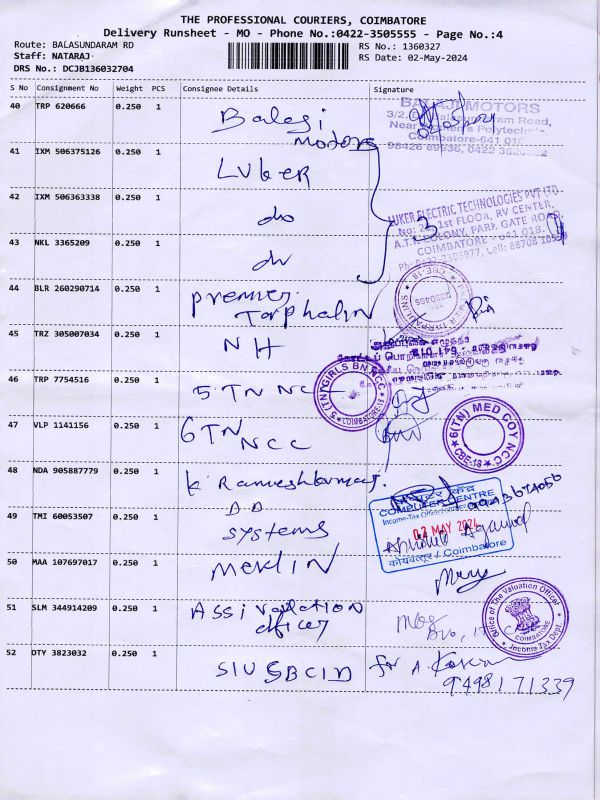 THE PROFESSIONAL COURIERS, COIMBATORE
Delivery Runsheet - MO - Phone No.:0422-3505555 - Page No.:4
Route: BALASUNDARAM RD
Staff: NATARAJ
DRS No.: DCJB136032704
RS No.: 1360327
RS Date: 02-May-2024
S No Consignment No Weight PCS Consignee Details Signature
40 TRP 620666 0.250 1 Balaji Motors
BALAJI MOTORS
Coimbatore-641 018
41 IXM 506375126 0.250 1 LUKER
42 IXM 506363338 0.250 1 do
LUKER ELECTRIC TECHNOLOGIES PVT LTD
1ST FLOOR, RV CENTER,
A.T.T. COLONY, PARK GATE ROAD,
COIMBATORE - 641 018.
3
43 NKL 3365209 0.250 1 do
44 BLR 260290714 0.250 1 Premier Tarphalin
45 TRZ 305007034 0.250 1 NH
46 TRP 7754516 0.250 1 5 TN NCC
5(TN) GIRLS BN NCC
COIMBATORE-18
47 VLP 1141156 0.250 1 6 TN NCC
6(TN) MED COY NCC
CBE-18
48 NDA 905887779 0.250 1 K Rameshkumar
49 TMI 60053507 0.250 1 DD Systems
कंप्यूटर केंद्र
COMPUTER CENTRE
02 MAY 2024
कोयंबत्तूर / Coimbatore
50 MAA 107697017 0.250 1 MERLIN
51 SLM 344914209 0.250 1 Assi valuation officer
Office of The Valuation Officer
COIMBATORE
Income Tax Dept.
52 OTY 3823032 0.250 1 SIU SBCID
for A.
9498171339